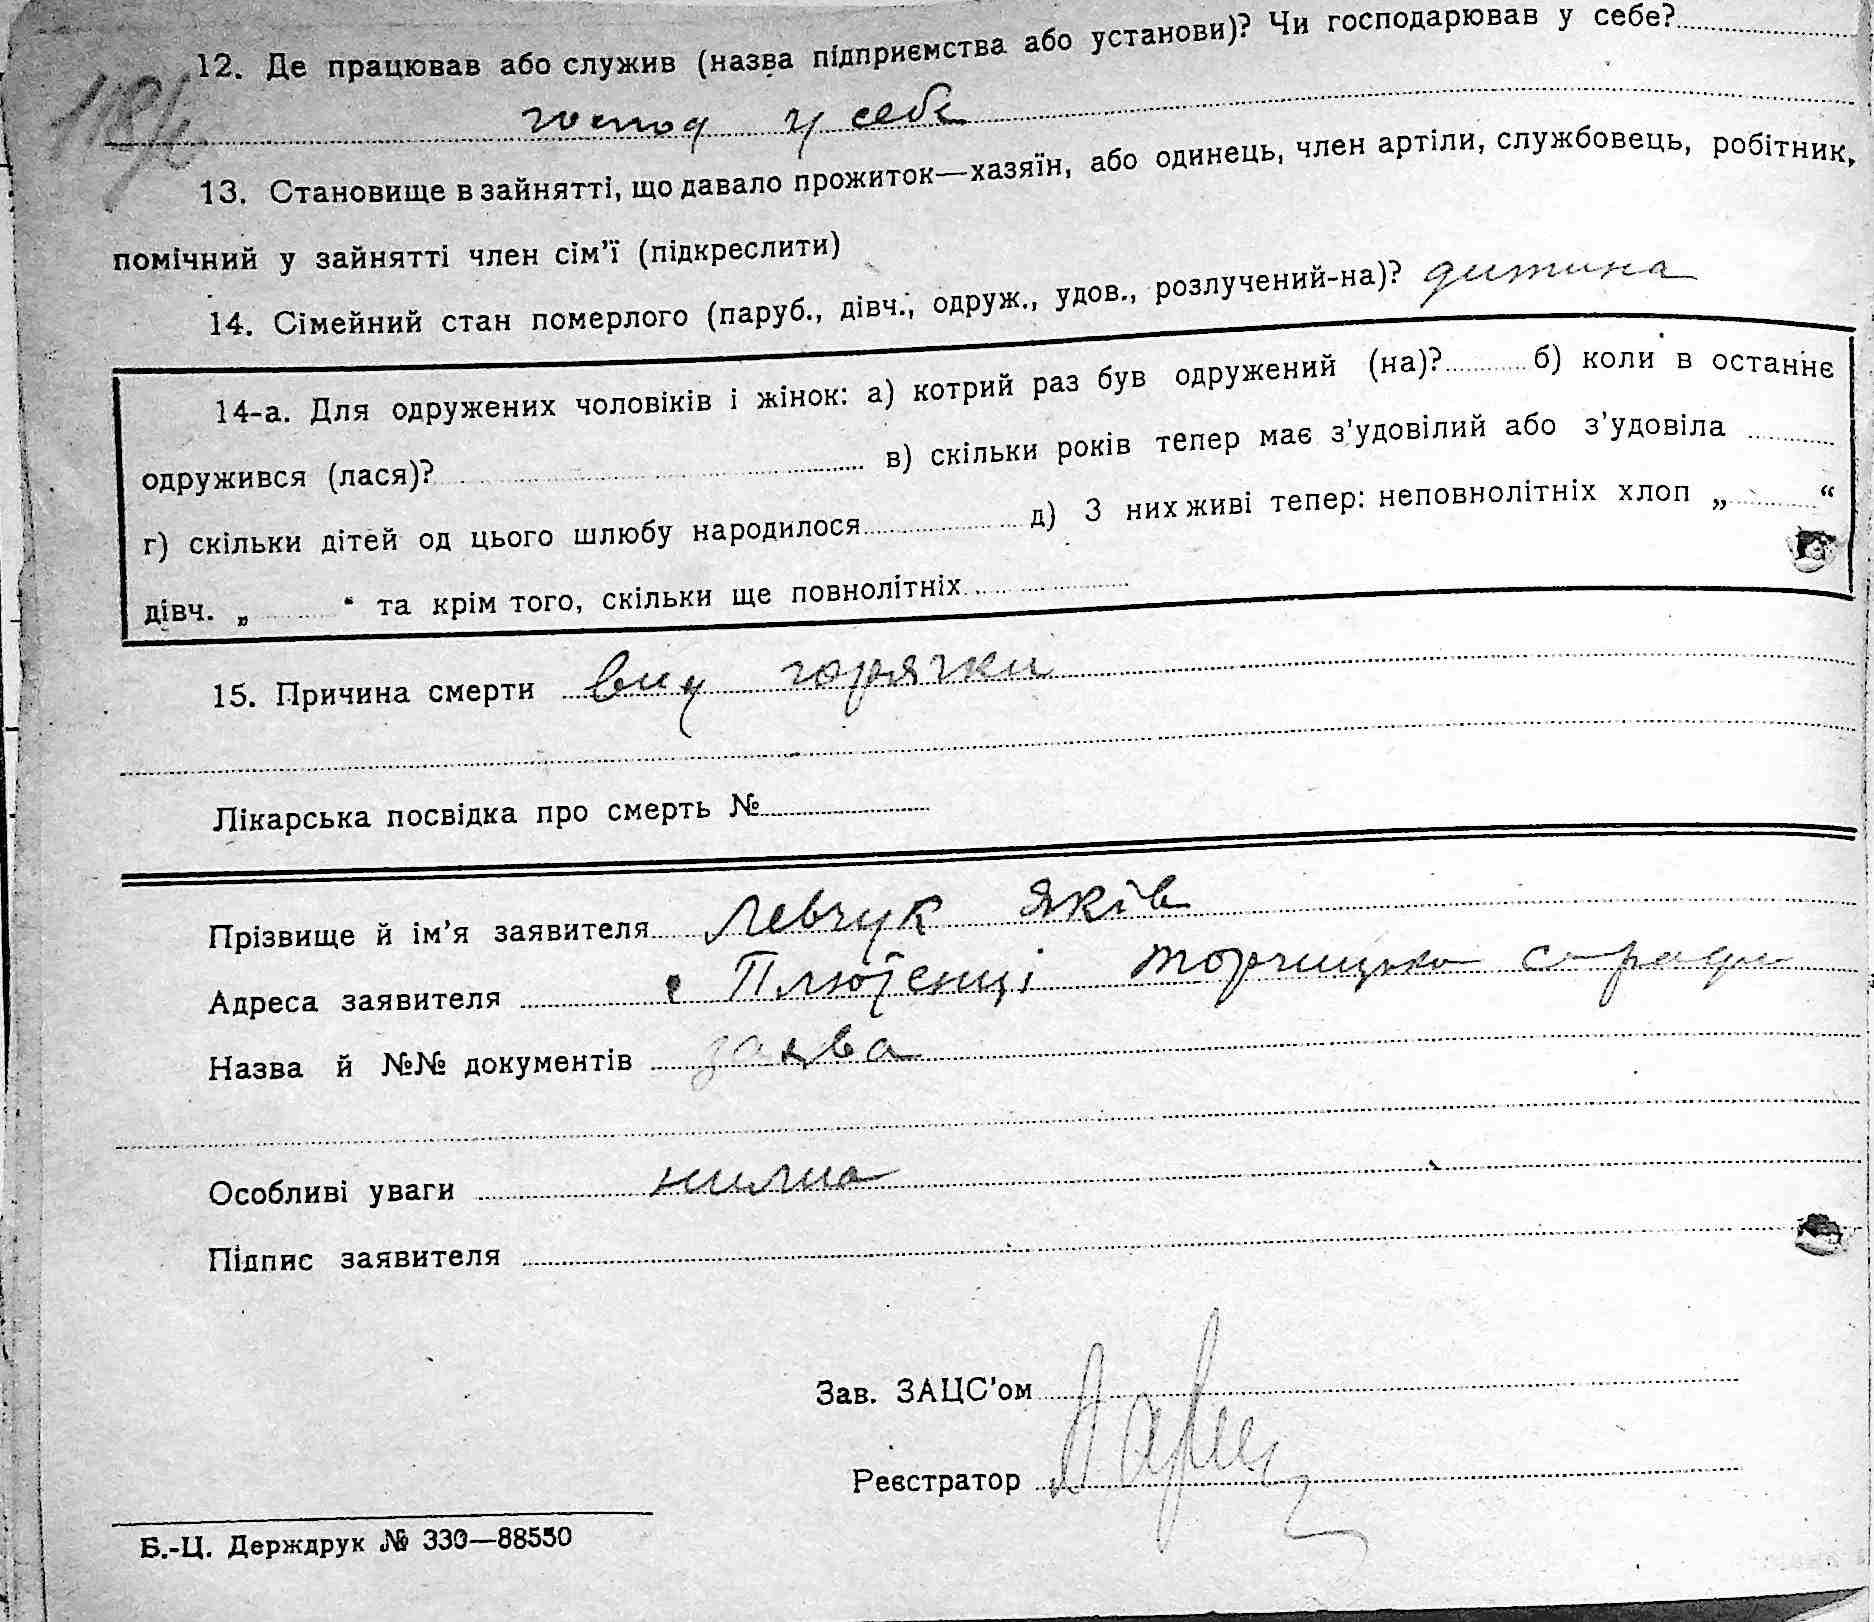 12. Де працював або служив (назва підприємства або установи)? Чи господарював у себе?
118/
господ у себе
13. Становище в зайнятті, що давало прожиток—хазяїн, або одинець, член артіли, службовець, робітник,
помічний у зайнятті член сім’ї (підкреслити)
14. Сімейний стан померлого (паруб., дівч., одруж., удов., розлучений-на)? дитина
14-а. Для одружених чоловіків і жінок: а) котрий раз був одружений (на)? б) коли в останнє
одружився (лася)? в) скільки років тепер має з’удовілий або з’удовіла
г) скільки дітей од цього шлюбу народилося д) З них живі тепер: неповнолітніх хлоп „ “
дівч. „ “ та крім того, скільки ще повнолітніх
15. Причина смерти вид горячки
Лікарська посвідка про смерть №
Прізвище й ім’я заявителя Левчук Яків
Адреса заявителя Торчицька с-ради
Назва й №№ документів заява
Особливі уваги нима
Підпис заявителя
Зав. ЗАЦС’ом
Реєстратор
Б.-Ц. Держдрук № 330—88550